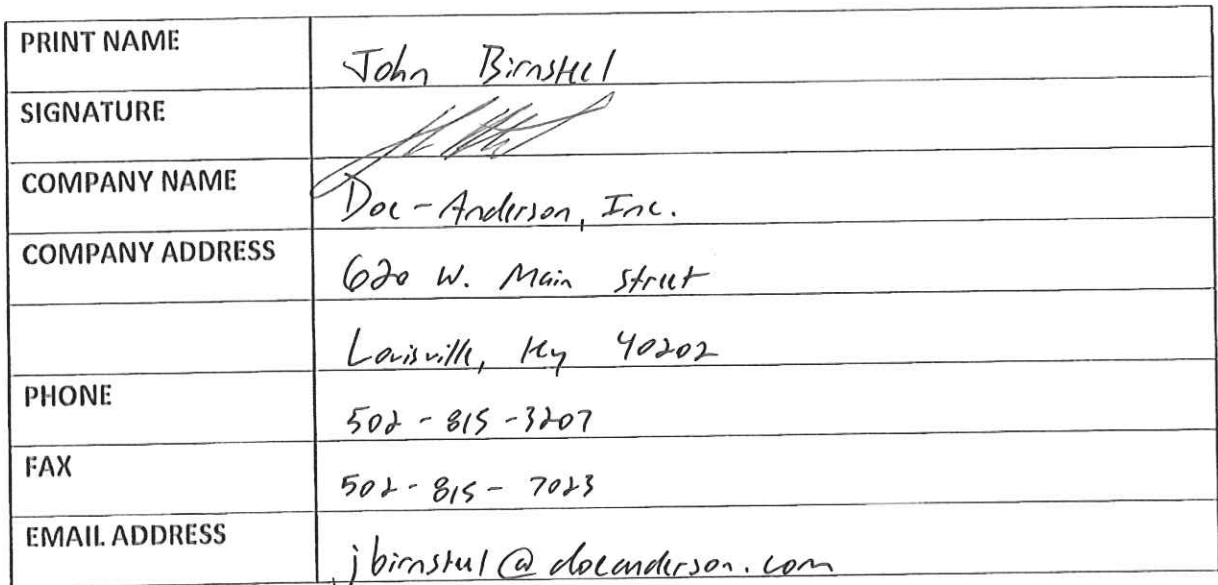 PRINT NAME John Birnsteel
SIGNATURE
COMPANY NAME Doe-Anderson, Inc.
COMPANY ADDRESS 620 W. Main Street
Louisville, Ky 40202
PHONE 502-815-3207
FAX 502-815-7023
EMAIL ADDRESS jbirnsteel@doeanderson.com